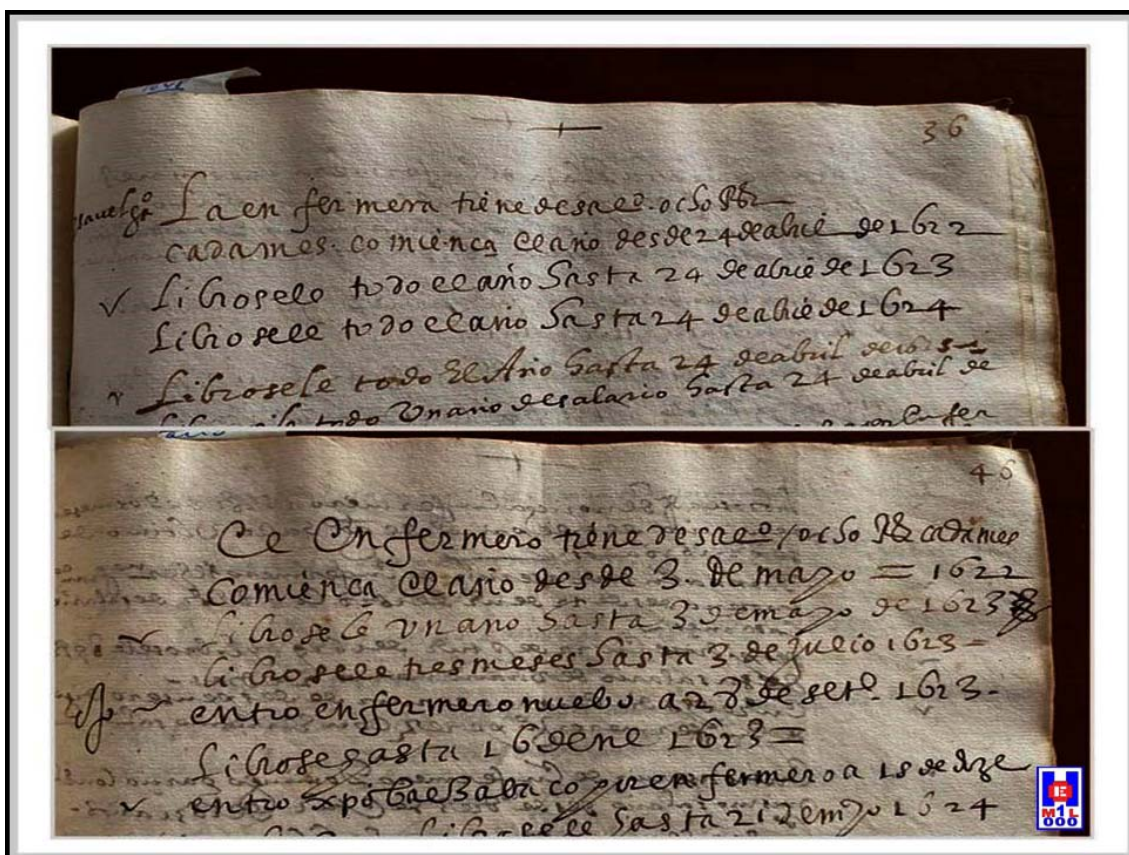 36
La enfermera tiene de sal.º ocho Rs
cada mes. comiença el año desde 24 de abril de 1622
Librosele todo el año hasta 24 de abril de 1623
Librosele todo el año hasta 24 de abril de 1624
Librosele todo El Año hasta 24 de abril de
todo Un año de salario hasta 24 de abril de
46
El Enfermero tiene de sal.º ocho Rs cada mes
Comiença el año desde 3. de mayo = 1622
librosele un año hasta 3 de mayo de 1623
librosele tres meses hasta 3. de julio 1623-
entro enfermero nuebo a 28 de set.º 1623-
librose hasta 16 de ene 1623=
entro por enfermero a 15 de
hasta 21 de mº 1624
HE
M1L
000